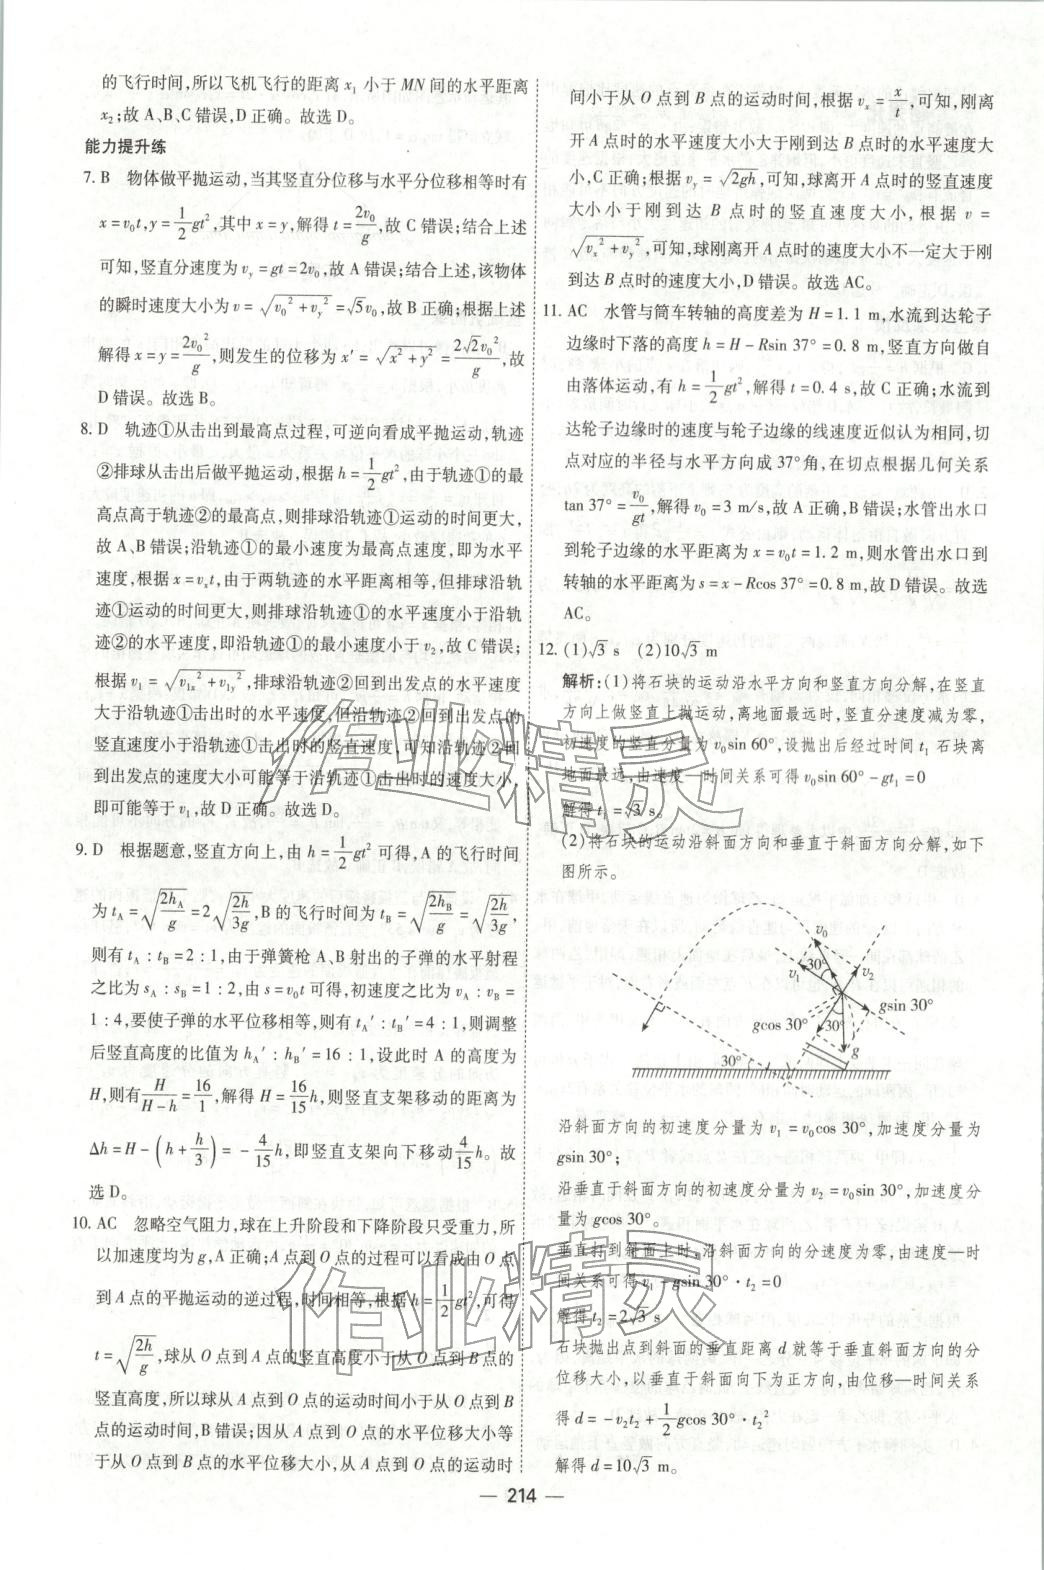 的飞行时间,所以飞机飞行的距离 x₁ 小于 MN 间的水平距离
x₂;故 A、B、C 错误,D 正确。故选 D。
能力提升练
7. B 物体做平抛运动,当其竖直分位移与水平分位移相等时有
x=v₀t,y=1/2gt²,其中 x=y,解得 t=2v₀/g,故 C 错误;结合上述
可知,竖直分速度为 v_y=gt=2v₀,故 A 错误;结合上述,该物体
的瞬时速度大小为 v=√(v₀²+v_y²)=√5v₀,故 B 正确;根据上述
解得 x=y=2v₀²/g,则发生的位移为 x′=√(x²+y²)=2√2v₀²/g,故
D 错误。故选 B。
8. D 轨迹①从击出到最高点过程,可逆向看成平抛运动,轨迹
②排球从击出后做平抛运动,根据 h=1/2gt²,由于轨迹①的最
高点高于轨迹②的最高点,则排球沿轨迹①运动的时间更大,
故 A、B 错误;沿轨迹①的最小速度为最高点速度,即为水平
速度,根据 x=vₓt,由于两轨迹的水平距离相等,但排球沿轨
迹①运动的时间更大,则排球沿轨迹①的水平速度小于沿轨
迹②的水平速度,即沿轨迹①的最小速度小于 v₂,故 C 错误;
根据 v₁=√(v₁ₓ²+v₁y²),排球沿轨迹②回到出发点的水平速度
大于沿轨迹①击出时的水平速度,但沿轨迹②回到出发点的
竖直速度小于沿轨迹①击出时的竖直速度,可知沿轨迹②回
到出发点的速度大小可能等于沿轨迹①击出时的速度大小,
即可能等于 v₁,故 D 正确。故选 D。
9. D 根据题意,竖直方向上,由 h=1/2gt² 可得,A 的飞行时间
为 t_A=√(2h_A/g)=2√(2h/3g),B 的飞行时间为 t_B=√(2h_B/g)=√(2h/3g),
则有 t_A:t_B=2:1,由于弹簧枪 A、B 射出的子弹的水平射程
之比为 s_A:s_B=1:2,由 s=v₀t 可得,初速度之比为 v_A:v_B=
1:4,要使子弹的水平位移相等,则有 t_A′:t_B′=4:1,则调整
后竖直高度的比值为 h_A′:h_B′=16:1,设此时 A 的高度为
H,则有H/(H-h)=16/1,解得 H=16/15h,则竖直支架移动的距离为
Δh=H-(h+h/3)=-4/15h,即竖直支架向下移动4/15h。故
选 D。
10. AC 忽略空气阻力,球在上升阶段和下降阶段只受重力,所
以加速度均为 g,A 正确;A 点到 O 点的过程可以看成由 O 点
到 A 点的平抛运动的逆过程,时间相等,根据 h=1/2gt²,可得
t=√(2h/g),球从 O 点到 A 点的竖直高度小于从 O 点到 B 点的
竖直高度,所以球从 A 点到 O 点的运动时间小于从 O 点到 B
点的运动时间,B 错误;因从 A 点到 O 点的水平位移大小等
于从 O 点到 B 点的水平位移大小,从 A 点到 O 点的运动时
间小于从 O 点到 B 点的运动时间,根据 vₓ=x/t,可知,刚离
开 A 点时的水平速度大小大于刚到达 B 点时的水平速度大
小,C 正确;根据 v_y=√2gh,可知,球离开 A 点时的竖直速度
大小小于刚到达 B 点时的竖直速度大小,根据 v=
√(vₓ²+v_y²),可知,球刚离开 A 点时的速度大小不一定大于刚
到达 B 点时的速度大小,D 错误。故选 AC。
11. AC 水管与筒车转轴的高度差为 H=1.1 m,水流到达轮子
边缘时下落的高度 h=H-Rsin 37°=0.8 m,竖直方向做自
由落体运动,有 h=1/2gt²,解得 t=0.4 s,故 C 正确;水流到
达轮子边缘时的速度与轮子边缘的线速度近似认为相同,切
点对应的半径与水平方向成 37°角,在切点根据几何关系
tan 37°=v₀/gt,解得 v₀=3 m/s,故 A 正确,B 错误;水管出水口
到轮子边缘的水平距离为 x=v₀t=1.2 m,则水管出水口到
转轴的水平距离为 s=x-Rcos 37°=0.8 m,故 D 错误。故选
AC。
12. (1)√3 s (2)10√3 m
解析:(1)将石块的运动沿水平方向和竖直方向分解,在竖直
方向上做竖直上抛运动,离地面最远时,竖直分速度减为零,
初速度的竖直分量为 v₀sin 60°,设抛出后经过时间 t₁ 石块离
地面最远,由速度—时间关系可得 v₀sin 60°-gt₁=0
解得 t₁=√3 s。
(2)将石块的运动沿斜面方向和垂直于斜面方向分解,如下
图所示。
v₀
v₁
30°
v₂
gsin 30°
gcos 30°
30°
g
30°
沿斜面方向的初速度分量为 v₁=v₀cos 30°,加速度分量为
gsin 30°;
沿垂直于斜面方向的初速度分量为 v₂=v₀sin 30°,加速度分
量为 gcos 30°。
垂直打到斜面上时,沿斜面方向的分速度为零,由速度—时
间关系可得 v₁-gsin 30°·t₂=0
解得 t₂=2√3 s。
石块抛出点到斜面的垂直距离 d 就等于垂直斜面方向的分
位移大小,以垂直于斜面方向向下为正方向,由位移—时间关系
得 d=-v₂t₂+1/2gcos 30°·t₂²
解得 d=10√3 m。
作业精灵
作业精灵
— 214 —